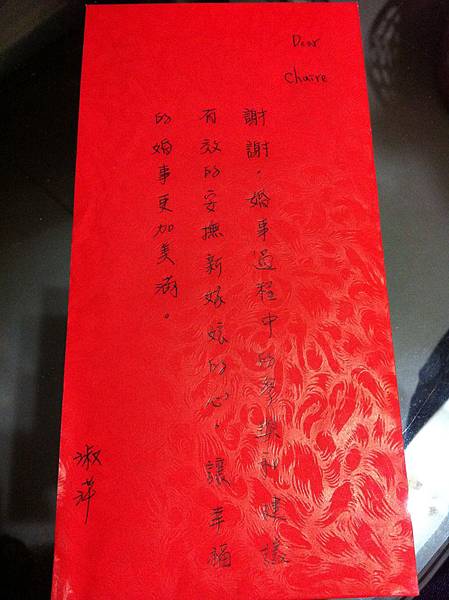 Dear
Chaire
謝謝，婚事過程中的參與和建議
有效的安撫新嫁娘的心，讓幸福
的婚事更加美滿。
淑萍